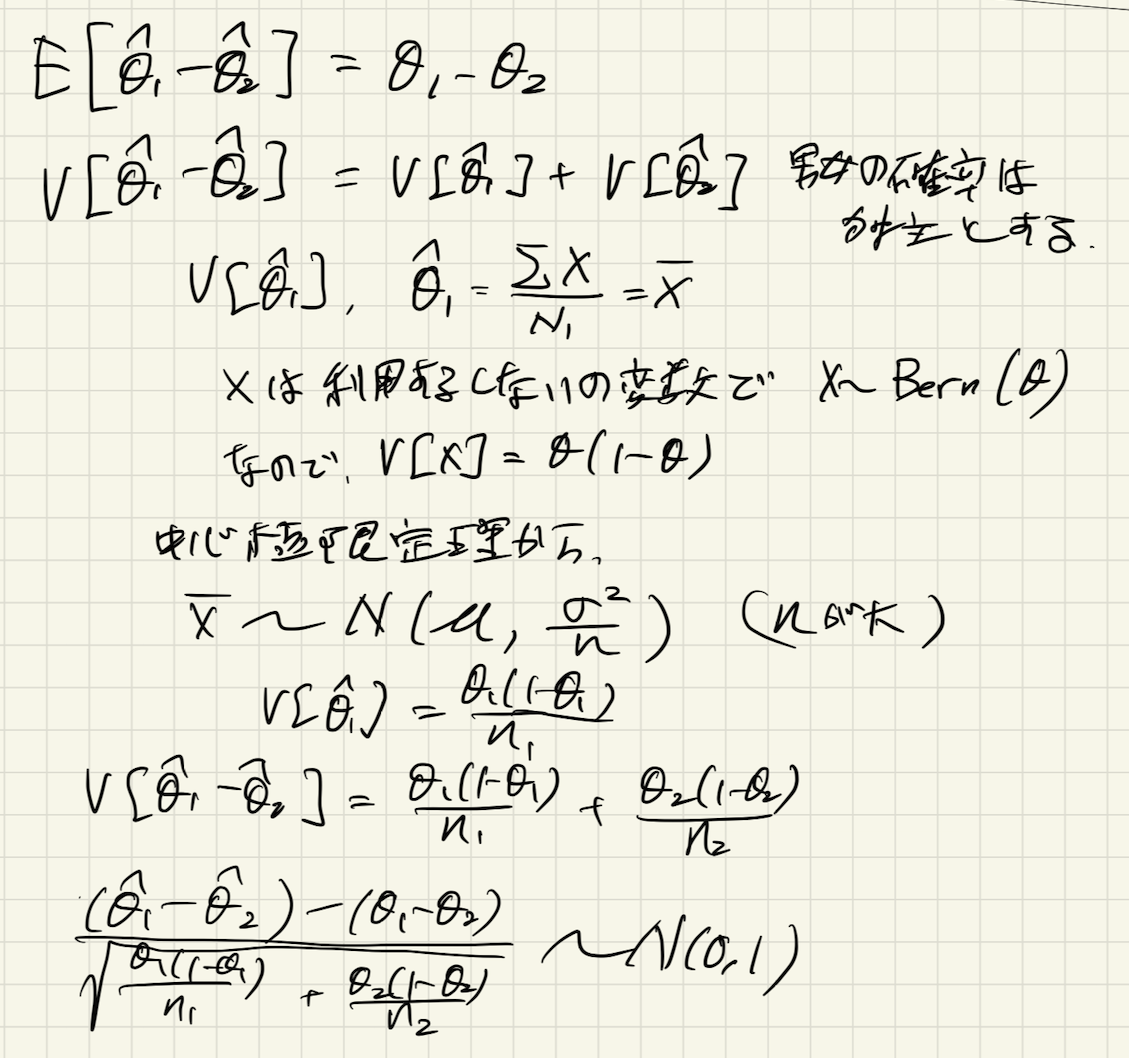 E[θ̂₁-θ̂₂] = θ₁-θ₂
V[θ̂₁-θ̂₂] = V[θ̂₁]+V[θ̂₂] 男女の確率は
独立とする.
V[θ̂₁], θ̂₁ = ΣX/N₁ = X̄
Xは利用するしないの変数で X~Bern(θ)
なので, V[X] = θ(1-θ)
中心極限定理から,
X̄ ~ N(μ, σ²/n) (nが大)
V[θ̂₁] = θ₁(1-θ₁)/n₁
V[θ̂₁-θ̂₂] = θ₁(1-θ₁)/n₁ + θ₂(1-θ₂)/n₂
(θ̂₁-θ̂₂)-(θ₁-θ₂)/√(θ₁(1-θ₁)/n₁ + θ₂(1-θ₂)/n₂) ~N(0,1)